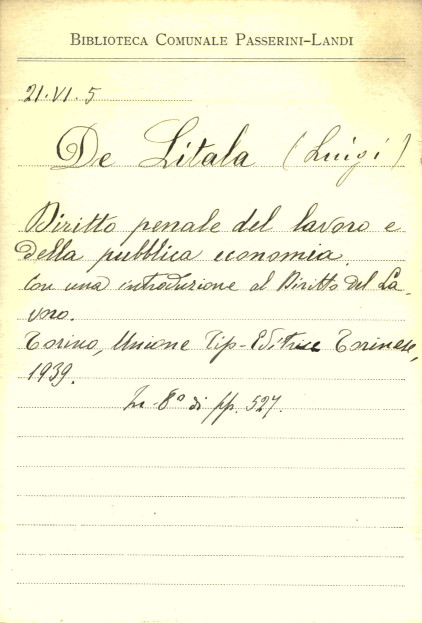 BIBLIOTECA COMUNALE PASSERINI-LANDI
21.VI.5
De Litala (Luigi)
Diritto penale del lavoro e
della pubblica economia.
Con una introduzione al Diritto del La-
voro.
Torino, Unione Tip-Editrice Torinese,
1939.
In-8° di pp. 527.